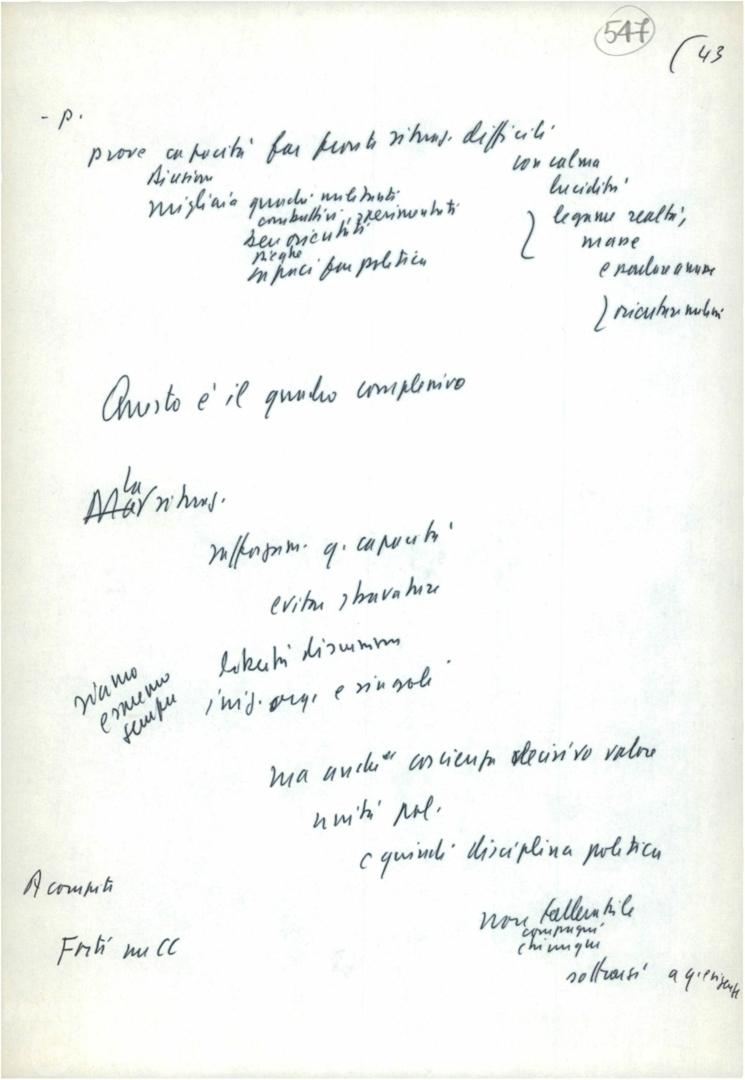 547
43
- p.
prove capacità far fronte situaz. difficili
con calma
lucidità
migliaia quadri militanti
combattivi, sperimentati
ben orientati
capaci far politica
legame realtà,
masse
orientare
Questo è il quadro complessivo
la
Ma situaz.
rafforzam. q. capacità
evitare sbavature
libertà discussione
iniz. org. e singoli
siamo
e saremo
sempre
ma anche coscienza decisivo valore
unità pol.
e quindi disciplina politica
A compiti
non tollerabile
compagni
chiunque
Forti CC
sottrarsi a q. esigenze